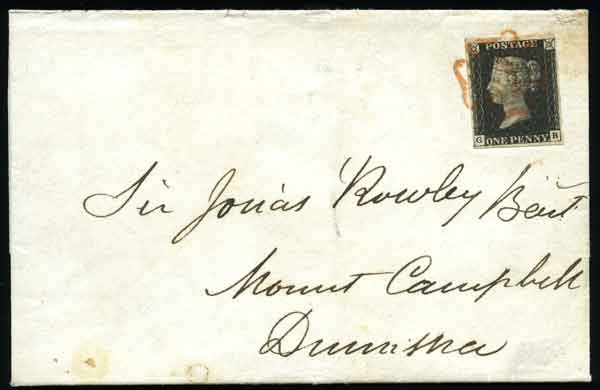 POSTAGE
G B
ONE PENNY
Sir Josias Rowley Bart
Mount Campbell
Drumsna